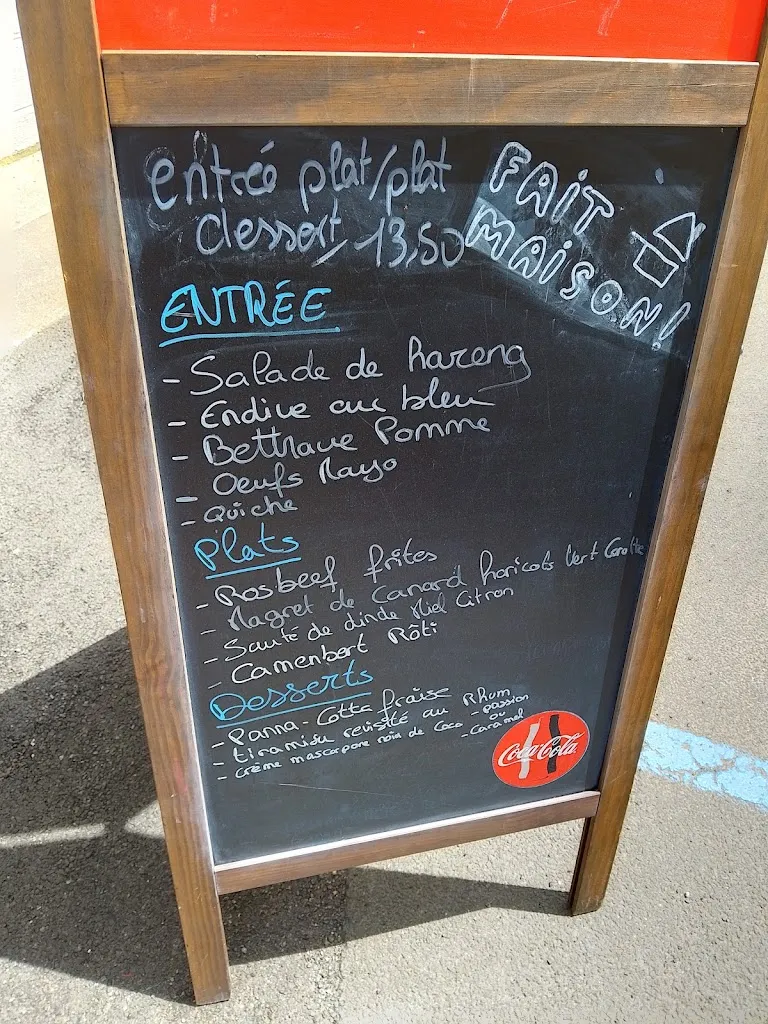 entrée plat/plat
dessert 13,50
FAIT
MAISON!
ENTRÉE
- Salade de hareng
- Endive au bleu
- Bettrave Pomme
- Oeufs Mayo
- Quiche
Plats
- Rosbeef frites
- Magret de Canard haricots Vert Carotte
- Sauté de dinde Miel Citron
- Camenbert Rôti
Desserts
- Panna-Cotta fraise
- tiramisu revisité au Rhum
- crème mascarpone noix de Coco - passion
ou
- Caramel
Coca-Cola